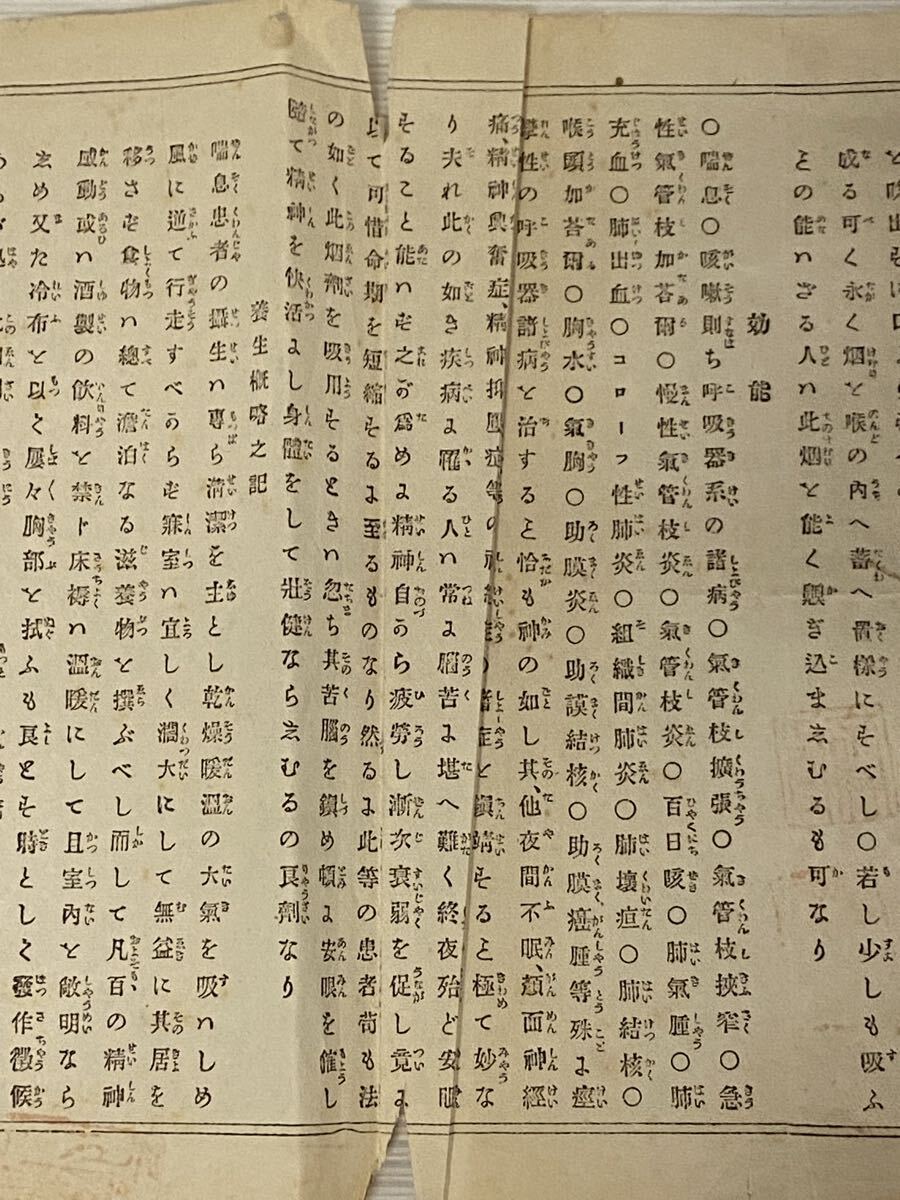 成る可く永く烟を喉の内へ蓄へ置様にすべし〇若し少しも吸ふ
ことの能いざる人い此烟を能く嗅ぎ込ましむるも可なり
効能
〇喘息〇咳嗽則ち呼吸器系の諸病〇氣管枝擴張〇氣管枝挾窄〇急
性氣管枝加荅兒〇慢性氣管枝炎〇氣管枝炎〇百日咳〇肺氣腫〇肺
充血〇肺出血〇コローフ性肺炎〇組織間肺炎〇肺壞疽〇肺結核〇
喉頭加荅兒〇胸水〇氣胸〇助膜炎〇助膜結核〇助膜癌腫等殊に痙
攣性の呼吸器諸病を治すると恰も神の如し其、他夜間不眠、顏面神經
痛、精神興奮症、精神抑鬱症等の諸症を鎭靜すると極めて妙な
り夫れ此の如き疾病に罹る人い常に腦苦に堪へ難く終夜殆ど安眠
すること能いず之が爲めに精神自から疲勞し漸次衰弱を促し竟に
以て可惜命期を短縮するに至るものなり然るに此等の患者苟も法
の如く此烟劑を吸用するときい忽ち其苦腦を鎭め頓に安眠を催し
隨て精神を快活にし身體をして壯健ならしむるの良劑なり
養生概略之記
喘息患者の攝生い專ら淸潔を主とし乾燥暖溫の大氣を吸いしめ
風に逆て行走すべからず寐室い宜しく濶大にして無益に其居を
移さず食物い總て澹泊なる滋養物を撰ぶべし而して凡百の精神
感動或い酒製の飮料を禁ド床褥い溫暖にして且室內を敞明なら
しめ又た冷布を以て屢々胸部を拭ふも良とす時として發作徵候